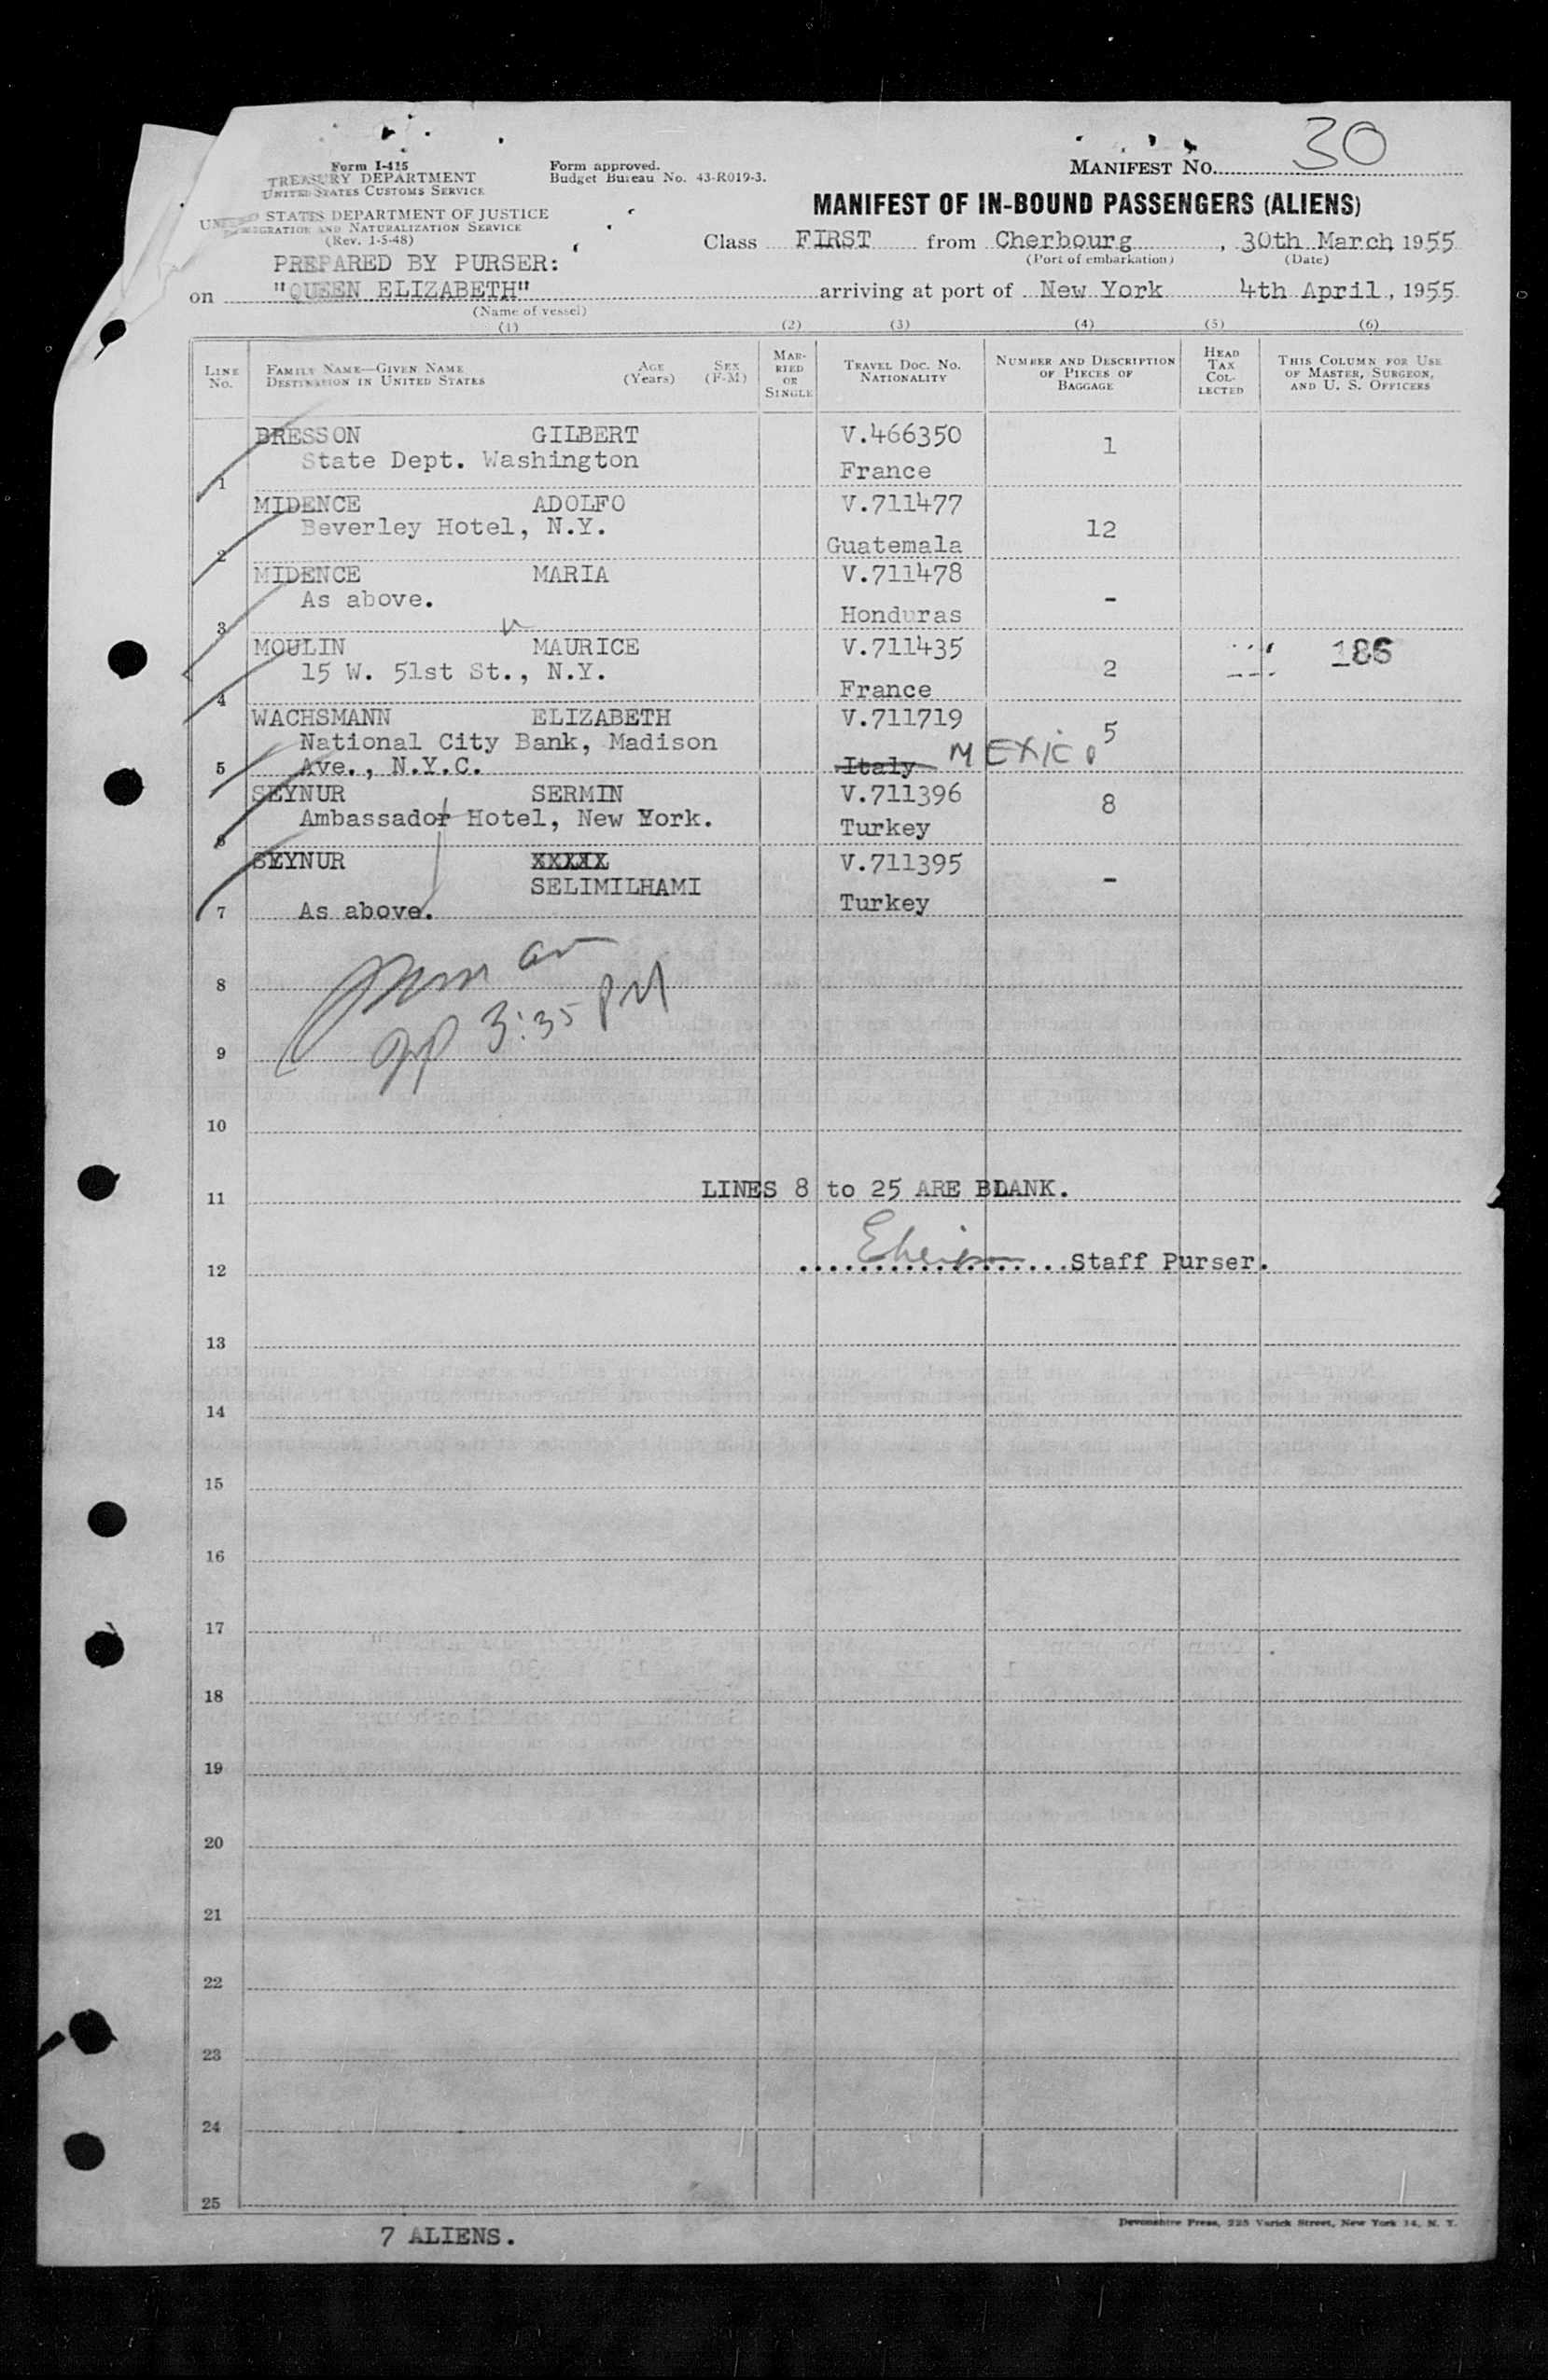 30
Form I-415
TREASURY DEPARTMENT
UNITED STATES CUSTOMS SERVICE
Form approved.
Budget Bureau No. 43-R019-3.
MANIFEST No.
UNITED STATES DEPARTMENT OF JUSTICE
IMMIGRATION AND NATURALIZATION SERVICE
(Rev. 1-5-48)
MANIFEST OF IN-BOUND PASSENGERS (ALIENS)
Class FIRST from Cherbourg, 30th March, 1955
(Port of embarkation) (Date)
PREPARED BY PURSER:
on "QUEEN ELIZABETH" arriving at port of New York 4th April, 1955
(Name of vessel)
(1) (2) (3) (4) (5) (6)
LINE No.
FAMILY NAME—GIVEN NAME
DESTINATION IN UNITED STATES
AGE (Years)
SEX (F-M)
MARRIED OR SINGLE
TRAVEL DOC. NO.
NATIONALITY
NUMBER AND DESCRIPTION
OF PIECES OF
BAGGAGE
HEAD TAX COLLECTED
THIS COLUMN FOR USE
OF MASTER, SURGEON,
AND U. S. OFFICERS
BRESSON GILBERT V.466350 1
State Dept. Washington France
1
MIDENCE ADOLFO V.711477 12
Beverley Hotel, N.Y. Guatemala
2
MIDENCE MARIA V.711478 -
As above. Honduras
3
MOULIN MAURICE V.711435 2 186
15 W. 51st St., N.Y. France
4
WACHSMANN ELIZABETH V.711719 5
National City Bank, Madison
5 Ave., N.Y.C. Italy MEXICO
SEYNUR SERMIN V.711396 8
Ambassador Hotel, New York. Turkey
6
SEYNUR XXXXX V.711395 -
SELIMILHAMI
7 As above. Turkey
8
3:35 PM
9
10
11 LINES 8 to 25 ARE BLANK.
12 Staff Purser.
13
14
15
16
17
18
19
20
21
22
23
24
25
Devonshire Press, 225 Varick Street, New York 14, N. Y.
7 ALIENS.